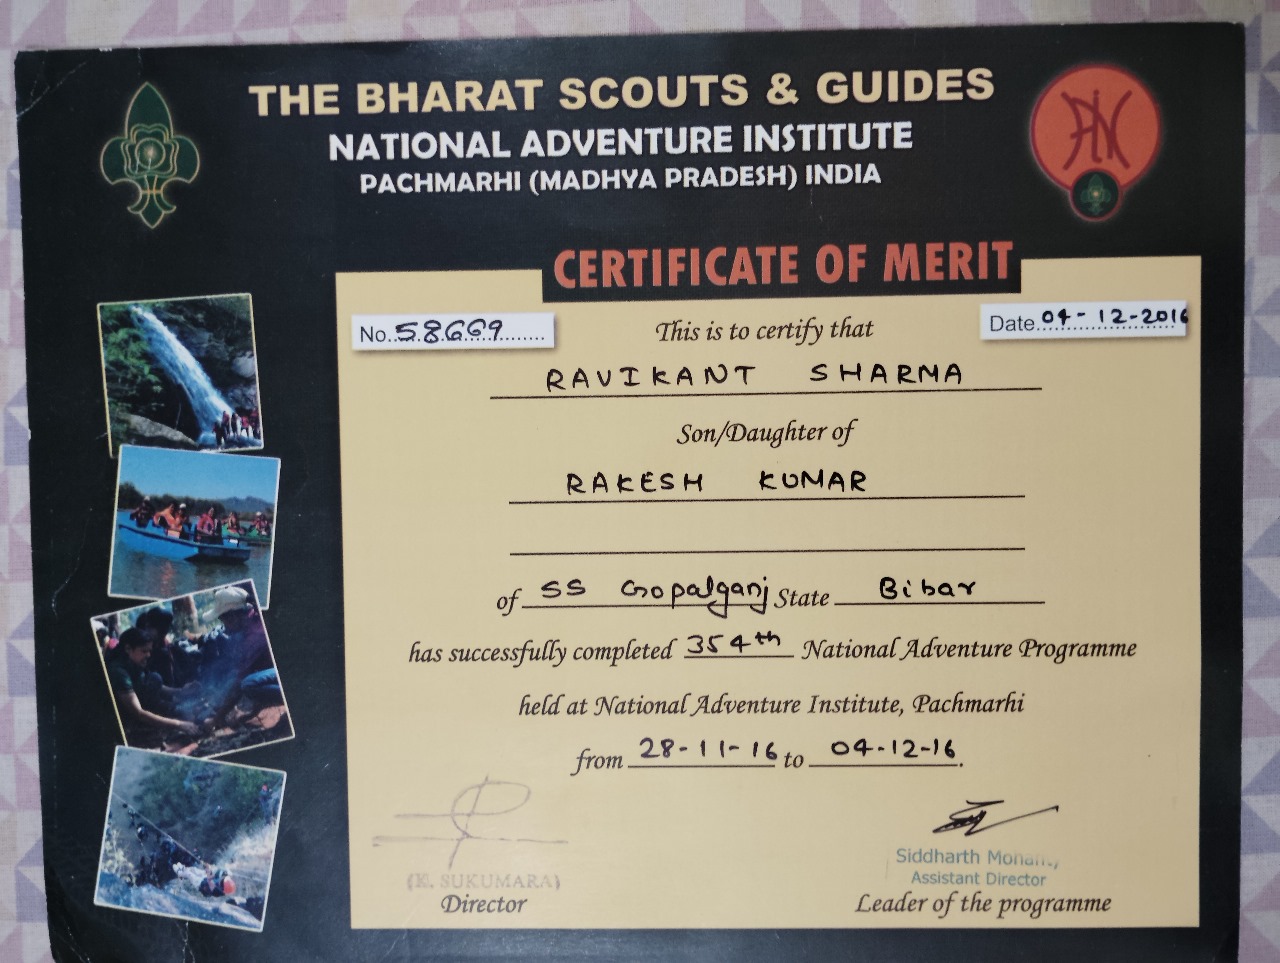 THE BHARAT SCOUTS & GUIDES
NATIONAL ADVENTURE INSTITUTE
PACHMARHI (MADHYA PRADESH) INDIA
CERTIFICATE OF MERIT
No. 58669
Date 04-12-2016
This is to certify that
RAVIKANT SHARMA
Son/Daughter of
RAKESH KUMAR
of SS Gopalganj State Bihar
has successfully completed 354th National Adventure Programme
held at National Adventure Institute, Pachmarhi
from 28-11-16 to 04-12-16.
(K. SUKUMARA)
Director
Siddharth Mohanty
Assistant Director
Leader of the programme